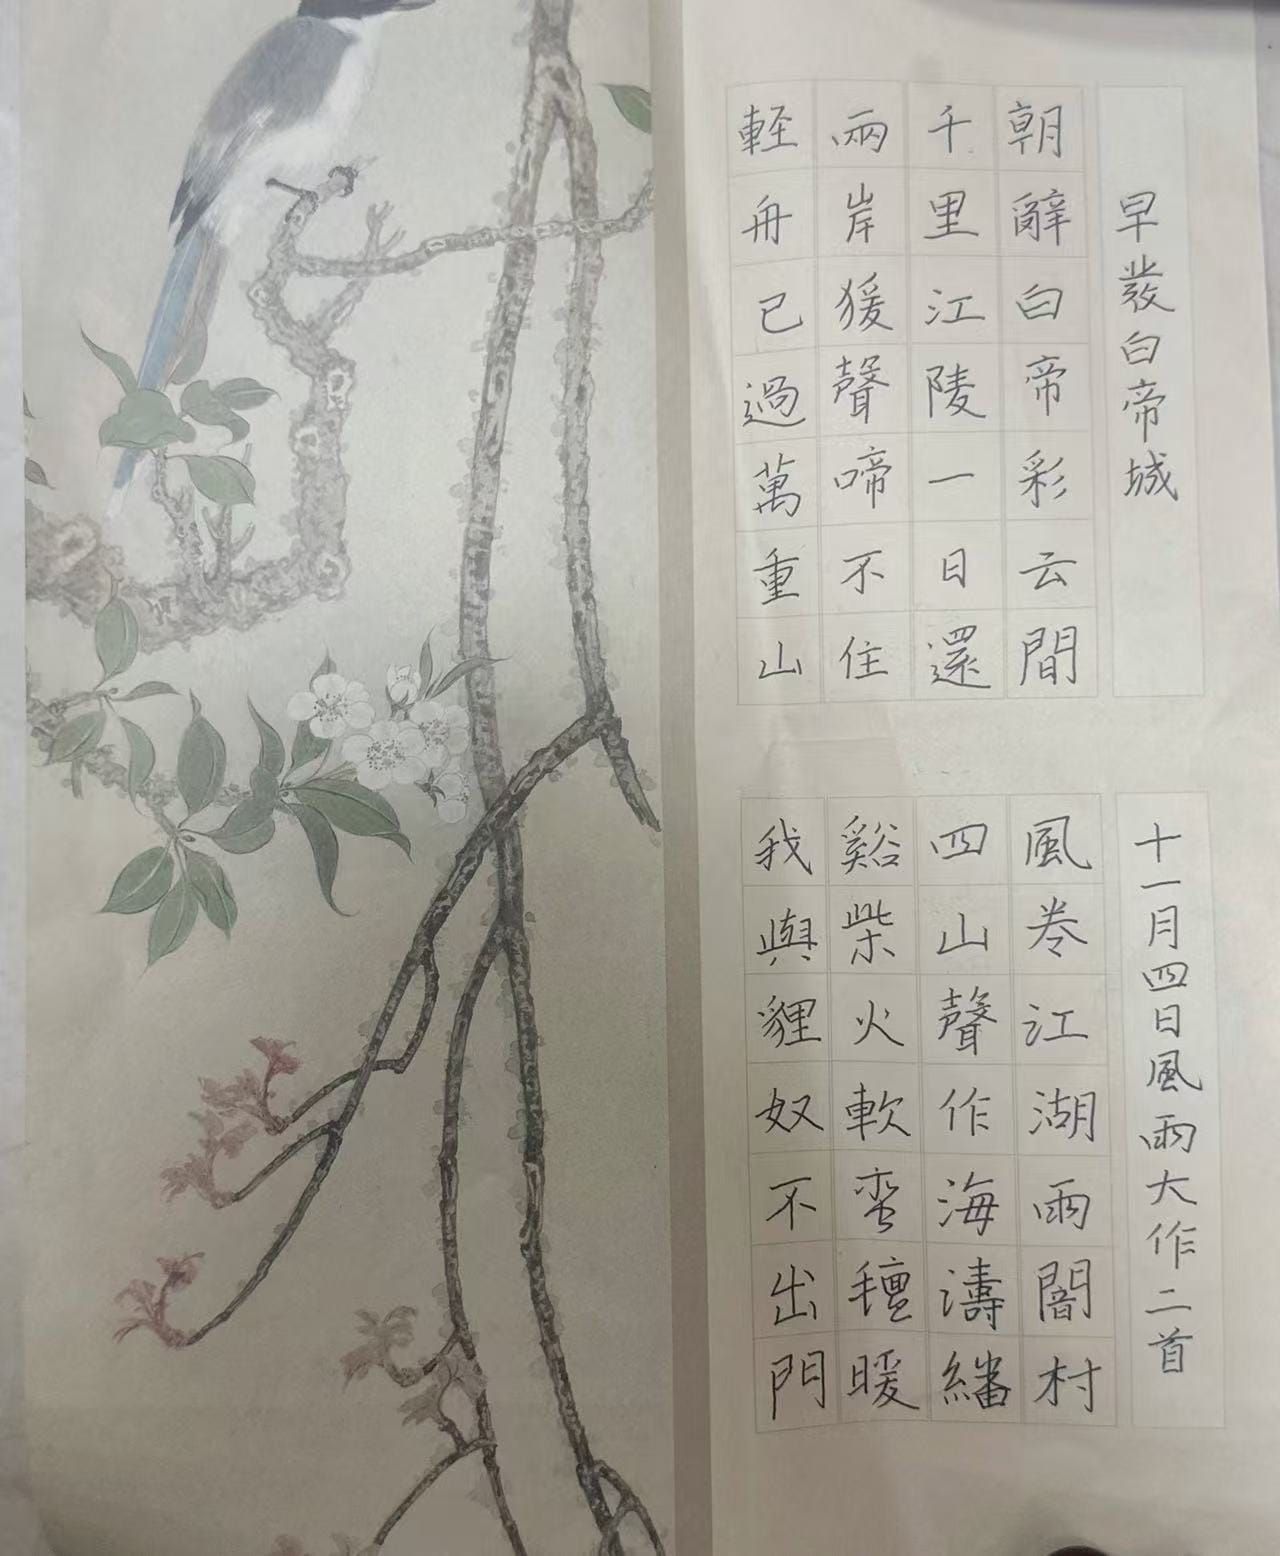 早發白帝城
朝辭白帝彩云間
千里江陵一日還
兩岸猨聲啼不住
輕舟已過萬重山
十一月四日風雨大作二首
風卷江湖雨闇村
四山聲作海濤繙
谿柴火軟蛮氊暖
我與貍奴不出門